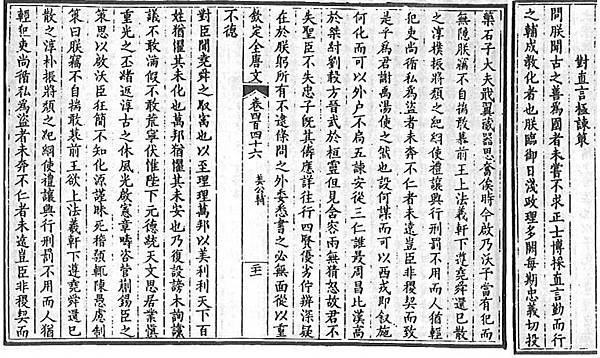 對直言極諫策
問朕聞古之善為國者未嘗不求正士博採直言勤而行
之輔成教化者也朕臨御日淺政理多闕每期忠義切投
藥石子大夫戢翼藏器思奮俟時今啟乃沃子當有犯而
無隱朕竊不自揣敢慕前王上法羲軒下遵堯舜還已散
之淳樸振將頹之紀綱使禮讓興行刑罰不用而人猶輕
犯吏尚循私為盜者未奔不仁者未遠豈臣非稷契而致
是乎為君謝禹湯使之然也設何謀而可以西戎即敘施
何化而可以外戶不扃五諫安從三仁誰最周昌比漢高
於桀紂劉毅方晉武於桓靈但見含容兩無猜怒故君不
失聖臣不失忠子既其儔應詳往行四賢優劣佇辨深疑
在於朕躬所有不逮條問之外委悉書之必無面從以重
不德
欽定全唐文 卷四百四十六 姜公輔
對臣聞堯舜之馭寓也以至理理萬邦以美利利天下百
姓猶懼其未化也萬邦猶懼其未安也乃復設謗木詢讜
議不敢滿假不敢荒寧伏惟陛下元德統天文思居業慎
重光之丕緒返淳古之休風光啟憲章疇咨芻蕘錫臣之
策思以啟沃臣狂簡不知化源謹昧死稽顙輒陳愚慮制
策曰朕竊不自揣敢慕前王欲上法羲軒下遵堯舜還已
散之淳朴振將頹之紀綱使禮讓興行刑罰不用而人猶
輕犯吏尚循私為盜者未奔不仁者未遠豈臣非稷契而